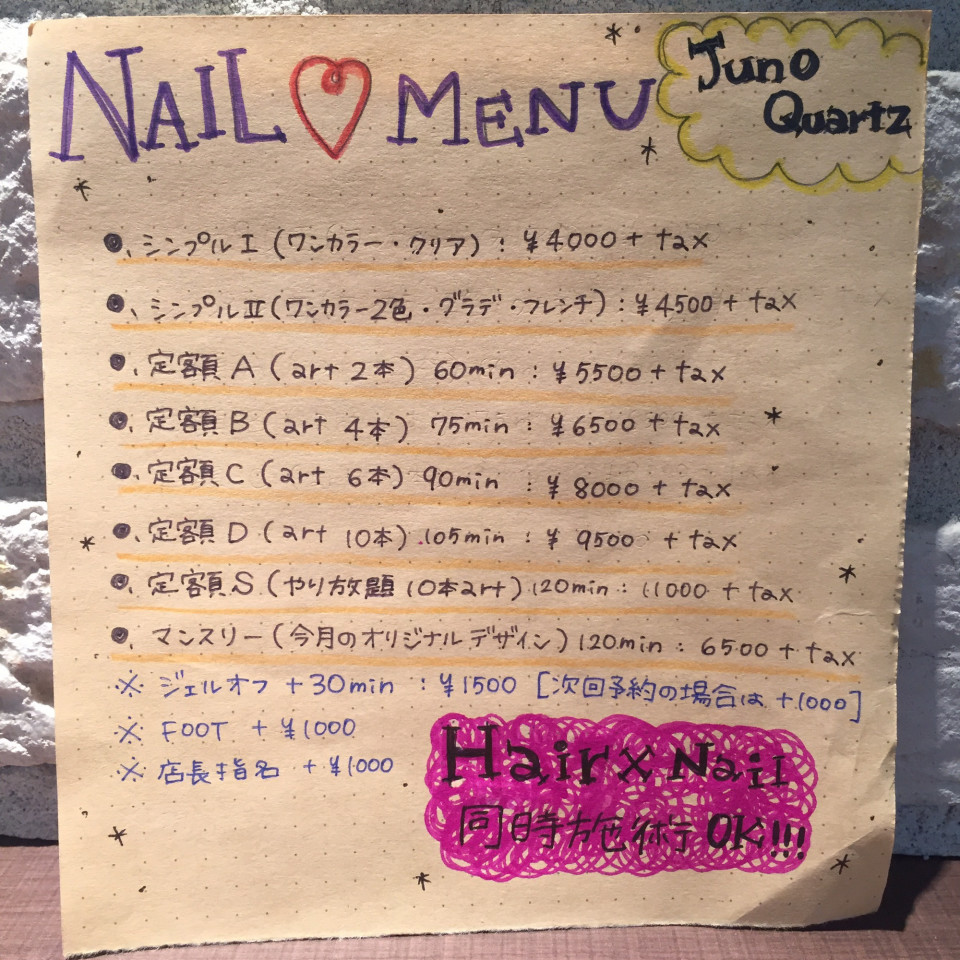 NAIL MENU
Juno
Quartz
シンプルⅠ(ワンカラー・クリア):¥4000+tax
シンプルⅡ(ワンカラー2色・グラデ・フレンチ):¥4500+tax
定額A(art 2本)60min:¥5500+tax
定額B(art 4本)75min:¥6500+tax
定額C(art 6本)90min:¥8000+tax
定額D(art 10本)105min:¥9500+tax
定額S(やり放題10本art)120min:11000+tax
マンスリー(今月のオリジナルデザイン)120min:6500+tax
※ジェルオフ+30min:¥1500[次回予約の場合は+1000]
※FOOT+¥1000
※店長指名+¥1000
Hair×Nail
同時施術OK!!!